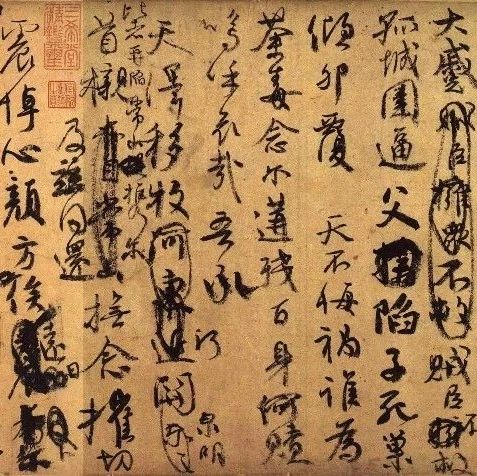 大蹙賊臣擁眾不救賊臣不救
孤城圍逼父陷子死巢
傾卵覆天不悔禍誰為
荼毒念爾遘殘百身何贖
嗚呼哀哉吾承
天澤移牧河東近河關
泉明
比者再陷常山攜爾
首櫬
及茲同還
撫念摧切
震悼心顏方俟
遠日